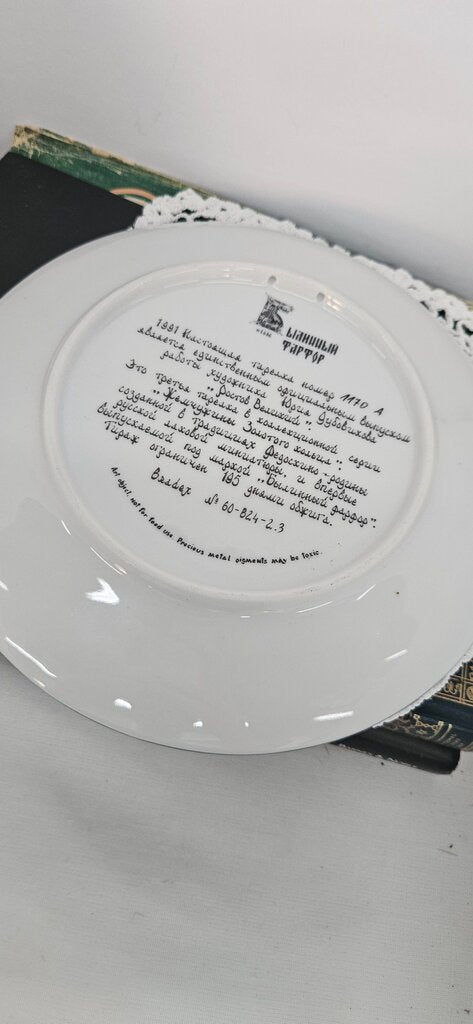 БЫЛИННЫЙ
ФАРФОР
1991 Настоящая тарелка номер 1170 А
является единственным официальным выпуском
работы художника Юрия Дубовикова
"Ростов Великий".
Это третья тарелка в коллекционной серии
"Жемчужины Золотого кольца",
созданной в традициях Федоскино-родины
русской лаковой миниатюры, и впервые
выпускаемой под маркой "Былинный фарфор".
Тираж ограничен 195 днями обжига.
Bradex № 60-B24-2.3
Art object, not for food use. Precious metal pigments may be toxic.